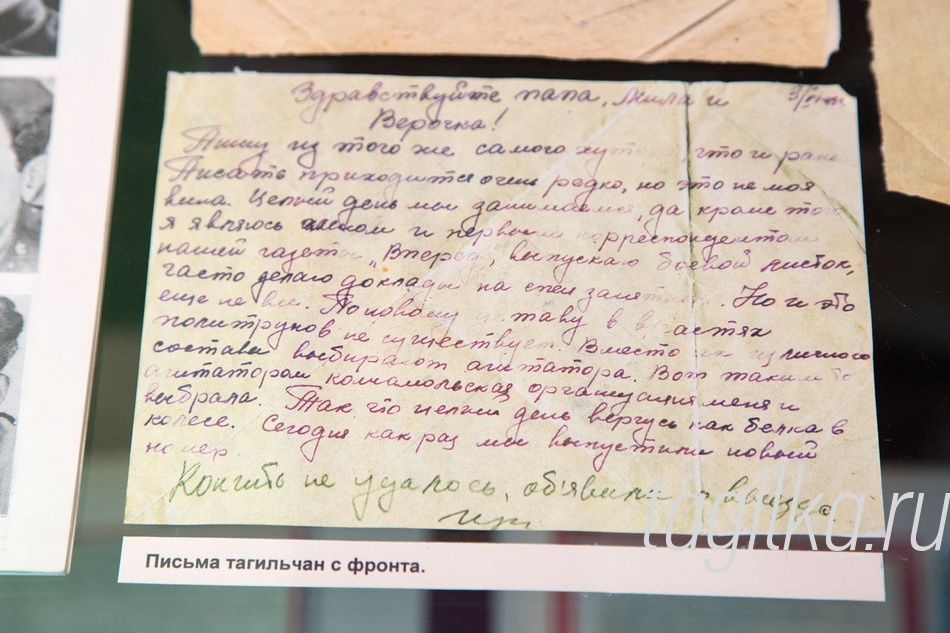 Здравствуйте папа, Мила и
Верочка!
Пишу из того же самого что и
Писать приходится очень редко, но это не моя
вина. Целый день мы занимаемся, да кроме
я являюсь членом и первым корреспондентом
нашей газеты „Вперед", выпускаю боевой листок,
часто делаю доклады на спец Но и это
еще не все. По новому уставу в
политруков не существует. Вместо их из личного
состава выбирают агитатора. Вот таким
агитатором комсомольская организация меня и
выбрала. Так что целый день верчусь как белка в
колесе. Сегодня как раз мы выпустили новый
номер.
Кончить не удалось, объявили о выезде.
Письма тагильчан с фронта.
tagilka.ru